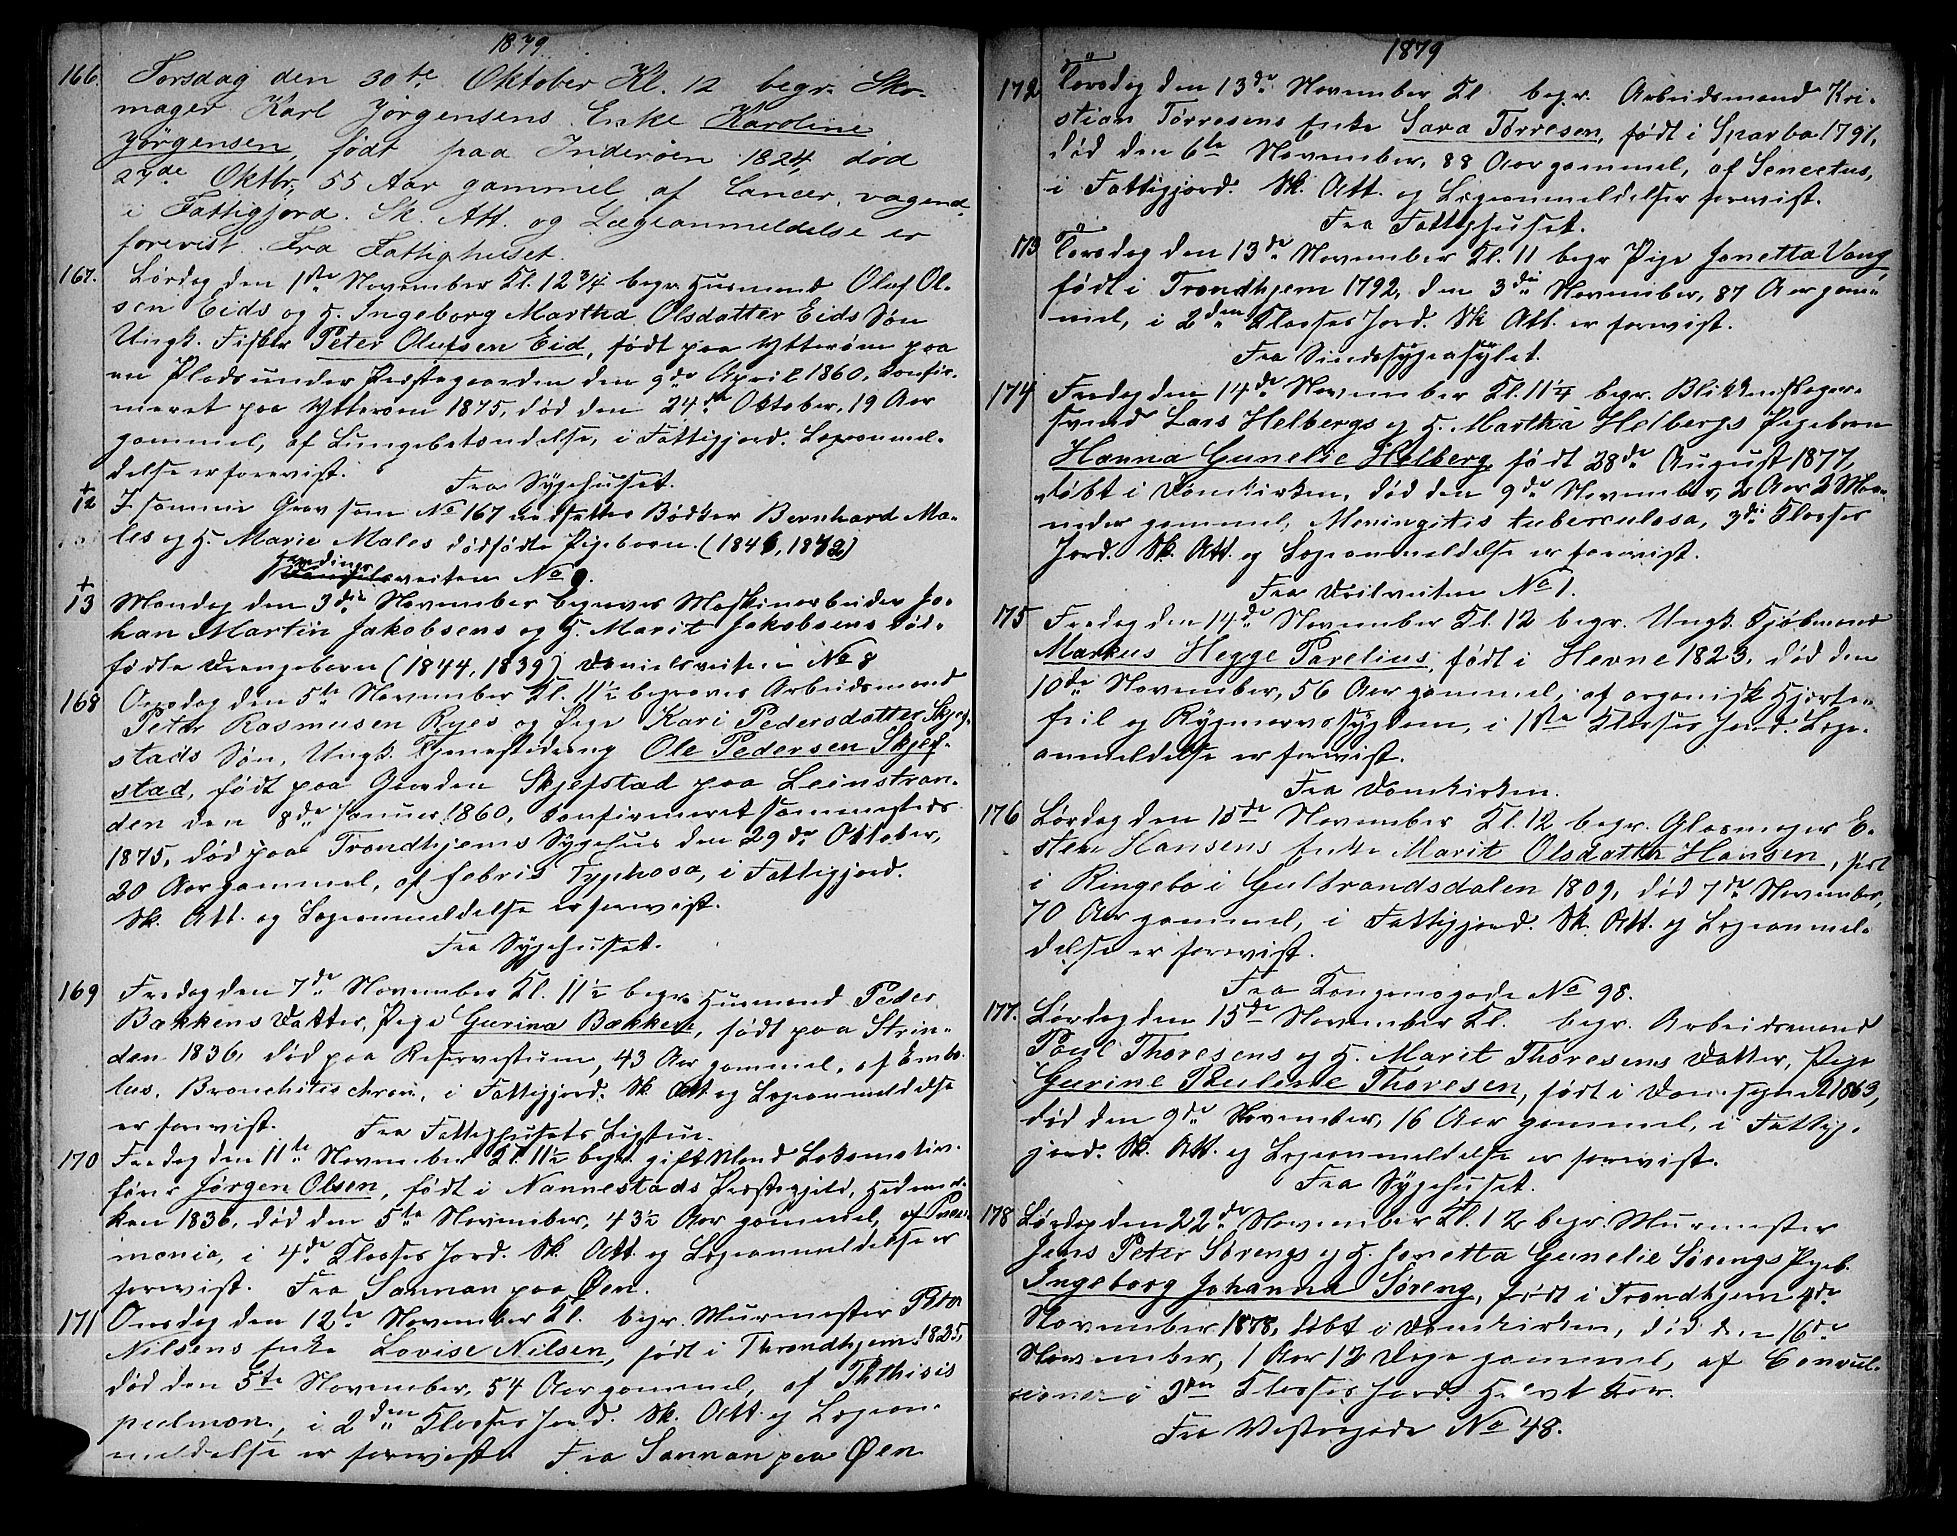 1879
166. Torsdag den 30te Oktober Kl. 12 begr. Sko-
mager Karl Jørgensens Enke Karoline
Jørgensen, født paa Inderøen 1824, død
27de Oktbr, 55 Aar gammel af Cancer vagend.
i Fattigjord. Sk. Att. og Lægeanmeldelse er
forevist. Fra Fattighuset.
167. Lørdag den 1ste November Kl. 12 3/4 begr. Husmand Oluf Ol-
sen Eids og H. Ingeborg Martha Olsdatter Eids Søn
Ungk. Fisker Peter Olufsen Eid, født paa Ytterøen paa
en Plads under Præstegaarden den 9de April 1860, Konfir-
meret paa Ytterøen 1875, død den 24de Oktober, 19 Aar
gammel, af Lungebetændelse, i Fattigjord. Lægeanmel-
delse er forevist. Fra Sygehuset.
+
12 I samme Grav som No 167 nedsattes Bødker Bernhard Ma-
les og H. Marie Males dødfødte Pigebarn. (1846, 1842)
veiten No 9.
+
13 Mandag den 3die November begraves Maskinarbeider Jo-
han Martin Jakobsens og H. Marit Jakobsens død-
fødte Drengebarn (1844, 1839) Danielsveiten No 8
168 Onsdag den 5te November Kl. 11 1/2 begraves Arbeidsmand
Peter Rasmusen Ryes og Pige Kari Pedersdatter Skjef-
stads Søn, Ungk. Tjenestedreng Ole Pedersen Skjef-
stad, født paa Gaarden Skjefstad paa Leinstran-
den den 8de Januar 1860, Konfirmeret sammesteds
1875, død paa Trondhjems Sygehus den 29de Oktober,
20 Aar gammel, af febris Typhosa, i Fattigjord.
Sk. Att. og Lægeanmeldelse er forevist.
Fra Sygehuset.
169 Fredag den 7de November Kl. 11 1/2 begr. Husmand Peder
Bækkens Datter, Pige Gurina Bækken, født paa Strin-
den 1836, død paa Reservestuen, 43 Aar gammel, af Embo-
lus, Bronchitis chron., i Fattigjord. Sk. Att. og Lægeanmeldelse
er forevist. Fra Fattighusets Ligstue.
170 Fredag den 11te November Kl. 11 1/2 begr. gift Mand Lokomotiv-
fører Jørgen Olsen, født i Nannestads Præstegjeld, Hedemar-
ken 1836, død den 5te November, 43 1/2 Aar gammel, af Pneu-
monia, i 4de Klasses Jord. Sk. Att. og Lægeanmeldelse er
forevist. Fra Sannan paa Øen.
171 Onsdag den 12te November Kl. begr. Murmester Peter
Nilsens Enke Lovise Nilsen, født i Throndhjem 1825,
død den 5te November, 54 Aar gammel, af Phthisis
pulmon., i 2den Klasses Jord. Sk. Att. og Lægean-
meldelse er forevist. Fra Sannan paa Øen
1879
172 Torsdag den 13de November Kl. begr. Arbeidsmand Kri-
stian Tørresens Enke Sara Tørresen, født i Sparbo 1791,
død den 6te November, 88 Aar gammel, af Senectus,
i Fattigjord. Sk. Att. og Lægeanmeldelse forevist.
Fra Fattighuset.
173 Torsdag den 13de November Kl. 11 begr. Pige Janetta Vang,
født i Trondhjem 1792, den 3die November, 87 Aar gam-
mel, i 2den Klasses Jord. Sk. Att. er forevist.
Fra Sindssygeasylet.
174 Fredag den 14de November Kl. 11 1/4 begr. Blikkenslager-
svend Lars Helbergs og H. Martha Helbergs Pigebarn
Hanna Gunelie Helberg, født 28de August 1877,
døbt i Domkirken, død den 9de November, 2 Aar 2 Maa-
neder gammel, Meningitis tuberculosa, 3die Klasses
Jord. Sk. Att. og Lægeanmeldelse er forevist.
Fra Veilveiten No 1.
175 Fredag den 14de November Kl. 12 begr. Ungk. Kjøbmand
Markus Hegge Parelius, født i Hevne 1823, død den
10de November, 56 Aar gammel, af organisk Hjerte-
feil og Rygmarvssygdom, i 1ste Klasses Jord. Læge-
anmeldelse er forevist.
Fra Domkirken.
176 Lørdag den 15de November Kl. 12 begr. Glasmager E-
sten Hansens Enke Marit Olsdatter Hansen, født
i Ringebo i Gulbrandsdalen 1809, død 7de November,
70 Aar gammel, i Fattigjord. Sk. Att. og Lægeanmel-
delse er forevist.
Fra Kongensgade No 98.
177. Lørdag den 15de November Kl. begr. Arbeidsmand
Poul Thoresens og H. Marit Thoresens Datter, Pige
Gurine Pauline Thoresen, født i Domsognet 1863,
død den 9de November, 16 Aar gammel, i Fattig-
jord. Sk. Att. og Lægeanmeldelse er forevist.
Fra Sygehuset.
178 Lørdag den 22de November Kl. 12 begr. Murmester
Jens Peter Sørengs og H. Janetta Gunelie Sørengs Pigeb.
Ingeborg Johanna Søreng, født i Trondhjem 4de
November 1878, døbt i Domkirken, død den 16de
November, 1 Aar 12 Dage gammel, af Convul-
sioner i 3die Klasses Jord. Halvt Kor.
Fra Vestregade No 48.